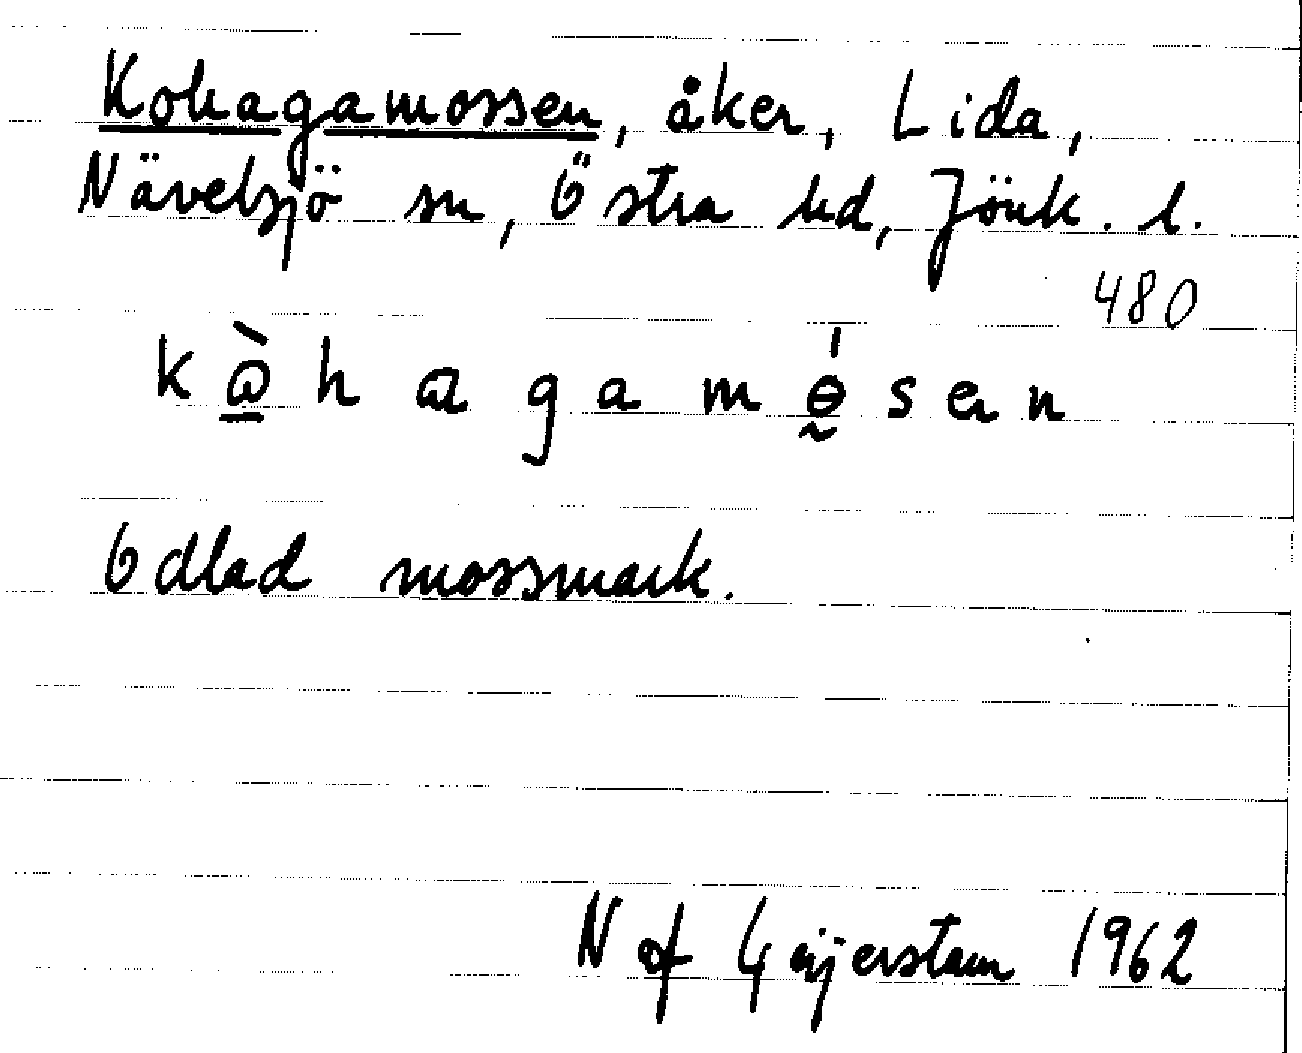 Kohagamossen, åker, Lida,
Nävelsjö sn, Östra hd, Jönk. l.
480
kὼ̱hαgamɵ̰́sen
Odlad mossmark.
N af Geijerstam 1962